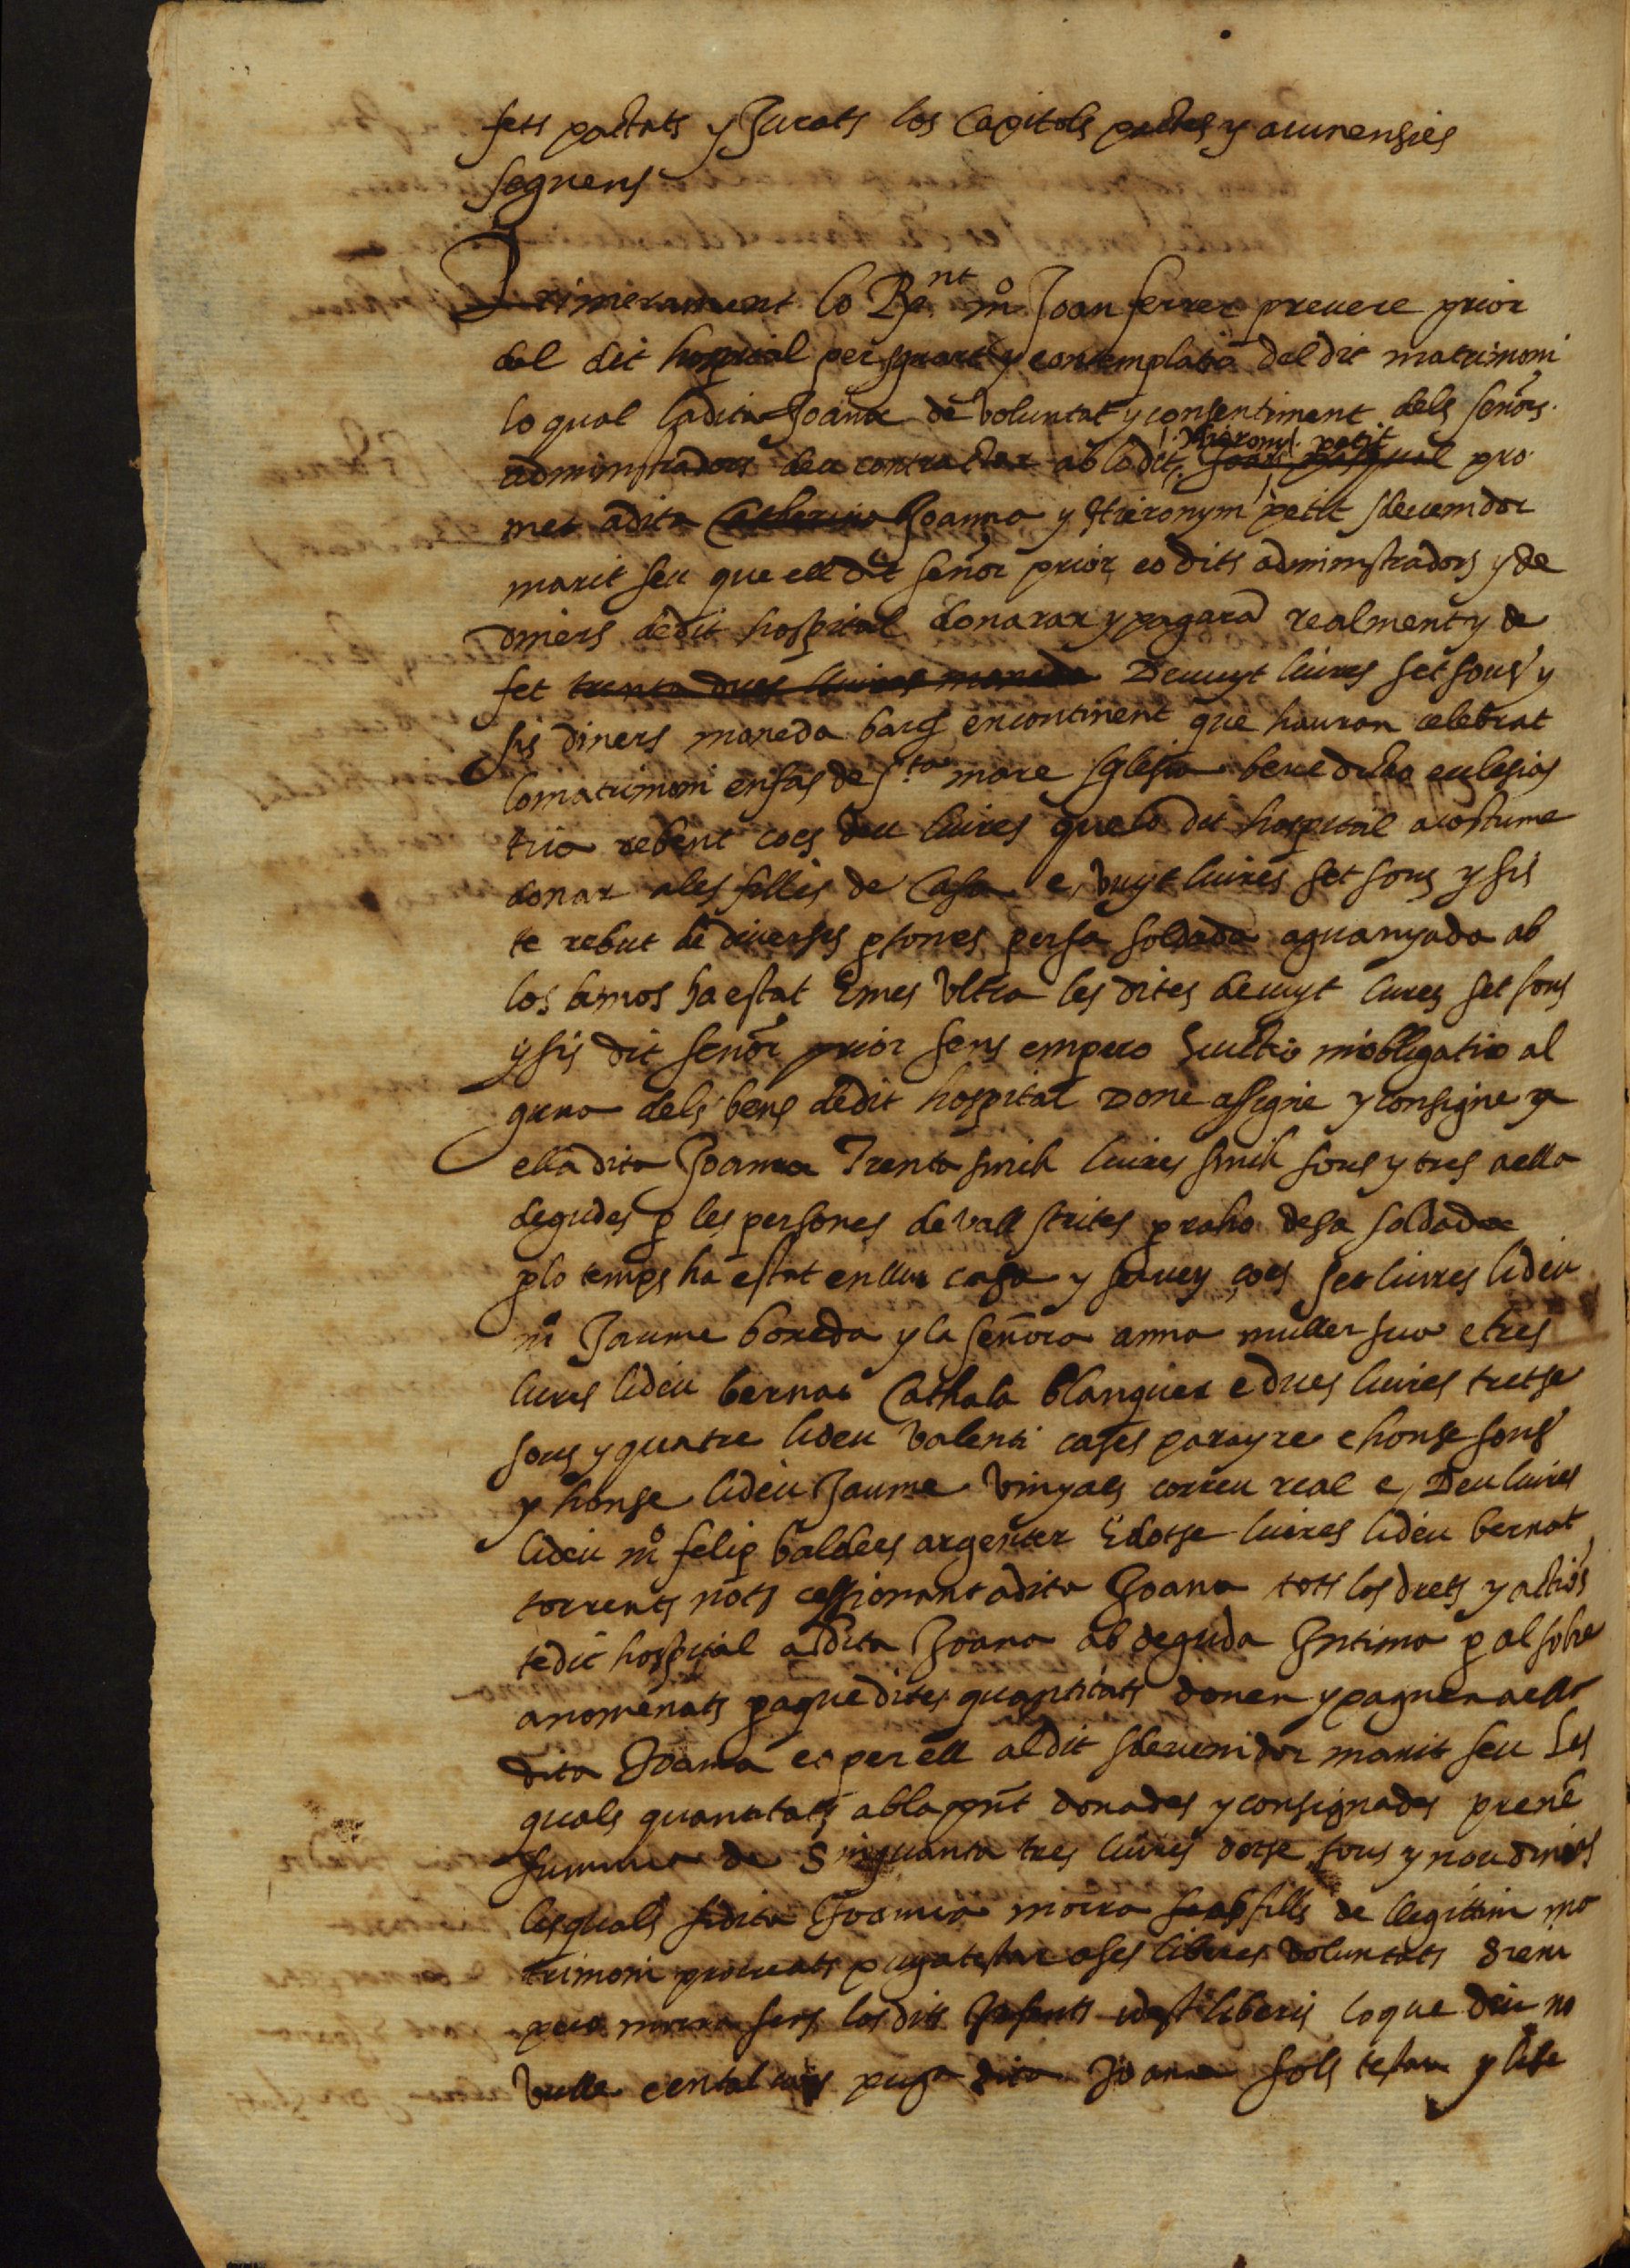 fets pactats y Jurats los Capitols pactes y avinensies
seguens
Primerament lo R.nt mº Joan ferrer prevere prior
del dit hospital per sguart y contemplatio del dit matrimoni
lo qual ladita Joana de voluntat y consentiment dels señors
administradors deu contractar ab lo dit Hieronym petit Joan pasqual pro
met adita Catherina Joanna y Hieronym petit sdevenidor
marit seu que ell dit señor prior eo dits administradors y de
diners dedit hospital donaran y pagara realment y de
fet trenta dues lliures moneda Devuyt liures set sous y
sis diners moneda barç encontinent que hauran celebrat
lomatrimoni enfas de s.ta mare Sglesia benedictio ecclesias
tica rebent ço es deu liures que lo dit hospital acostuma
donar ales filles de Casa e vuyt liures set sous y sis
te rebut de diverses psones persa soldada aguanyada ab
los amos ha estat Emes Ultra les dites devuyt liures set sous
y sis dit señor prior sens empero evictio ni obligatio al
guna dels bens dedit hospital Done assigne y consigne a
ella dita Joanna Trenta sinch liures sinch sous y tres aella
degudes p les persones devall scrites p raho desa soldada
plo temps ha estat enllur casa y servey, ço es set liures lideu
mº Jaume boreda y la señora anna muller sua e tres
liures lideu bernat Cathala blanquer e dues liures tretse
sous y quatre lideu Valenti cases parayre e honse sous
y honse lideu Jaume vinyals correu real e Deu liures
lideu mº felip baldees argenter Edotse liures lideu bernat
torrents nots cessionant adita Joana tots los drets y actios
te dit hospital a dita Joana ab deguda Intima p al sobre
anomenats p que dites quantitats donen y paguen aella
dita Joana eo per ell aldit sdevenidor marit seu Les
quals quantitats ablapnt donades y consignades prenẽ
summa de Sinquanta tres liures dotse sous y nou diners
lesquals sidita Joanna morra ab fills de llegittim ma
trimoni procreats puga testar a ses liberes voluntats Si em
pero morra sens los dits Infants idest liberis lo que deu no
vulla eental cas puga dita Joanna sols testar y lise